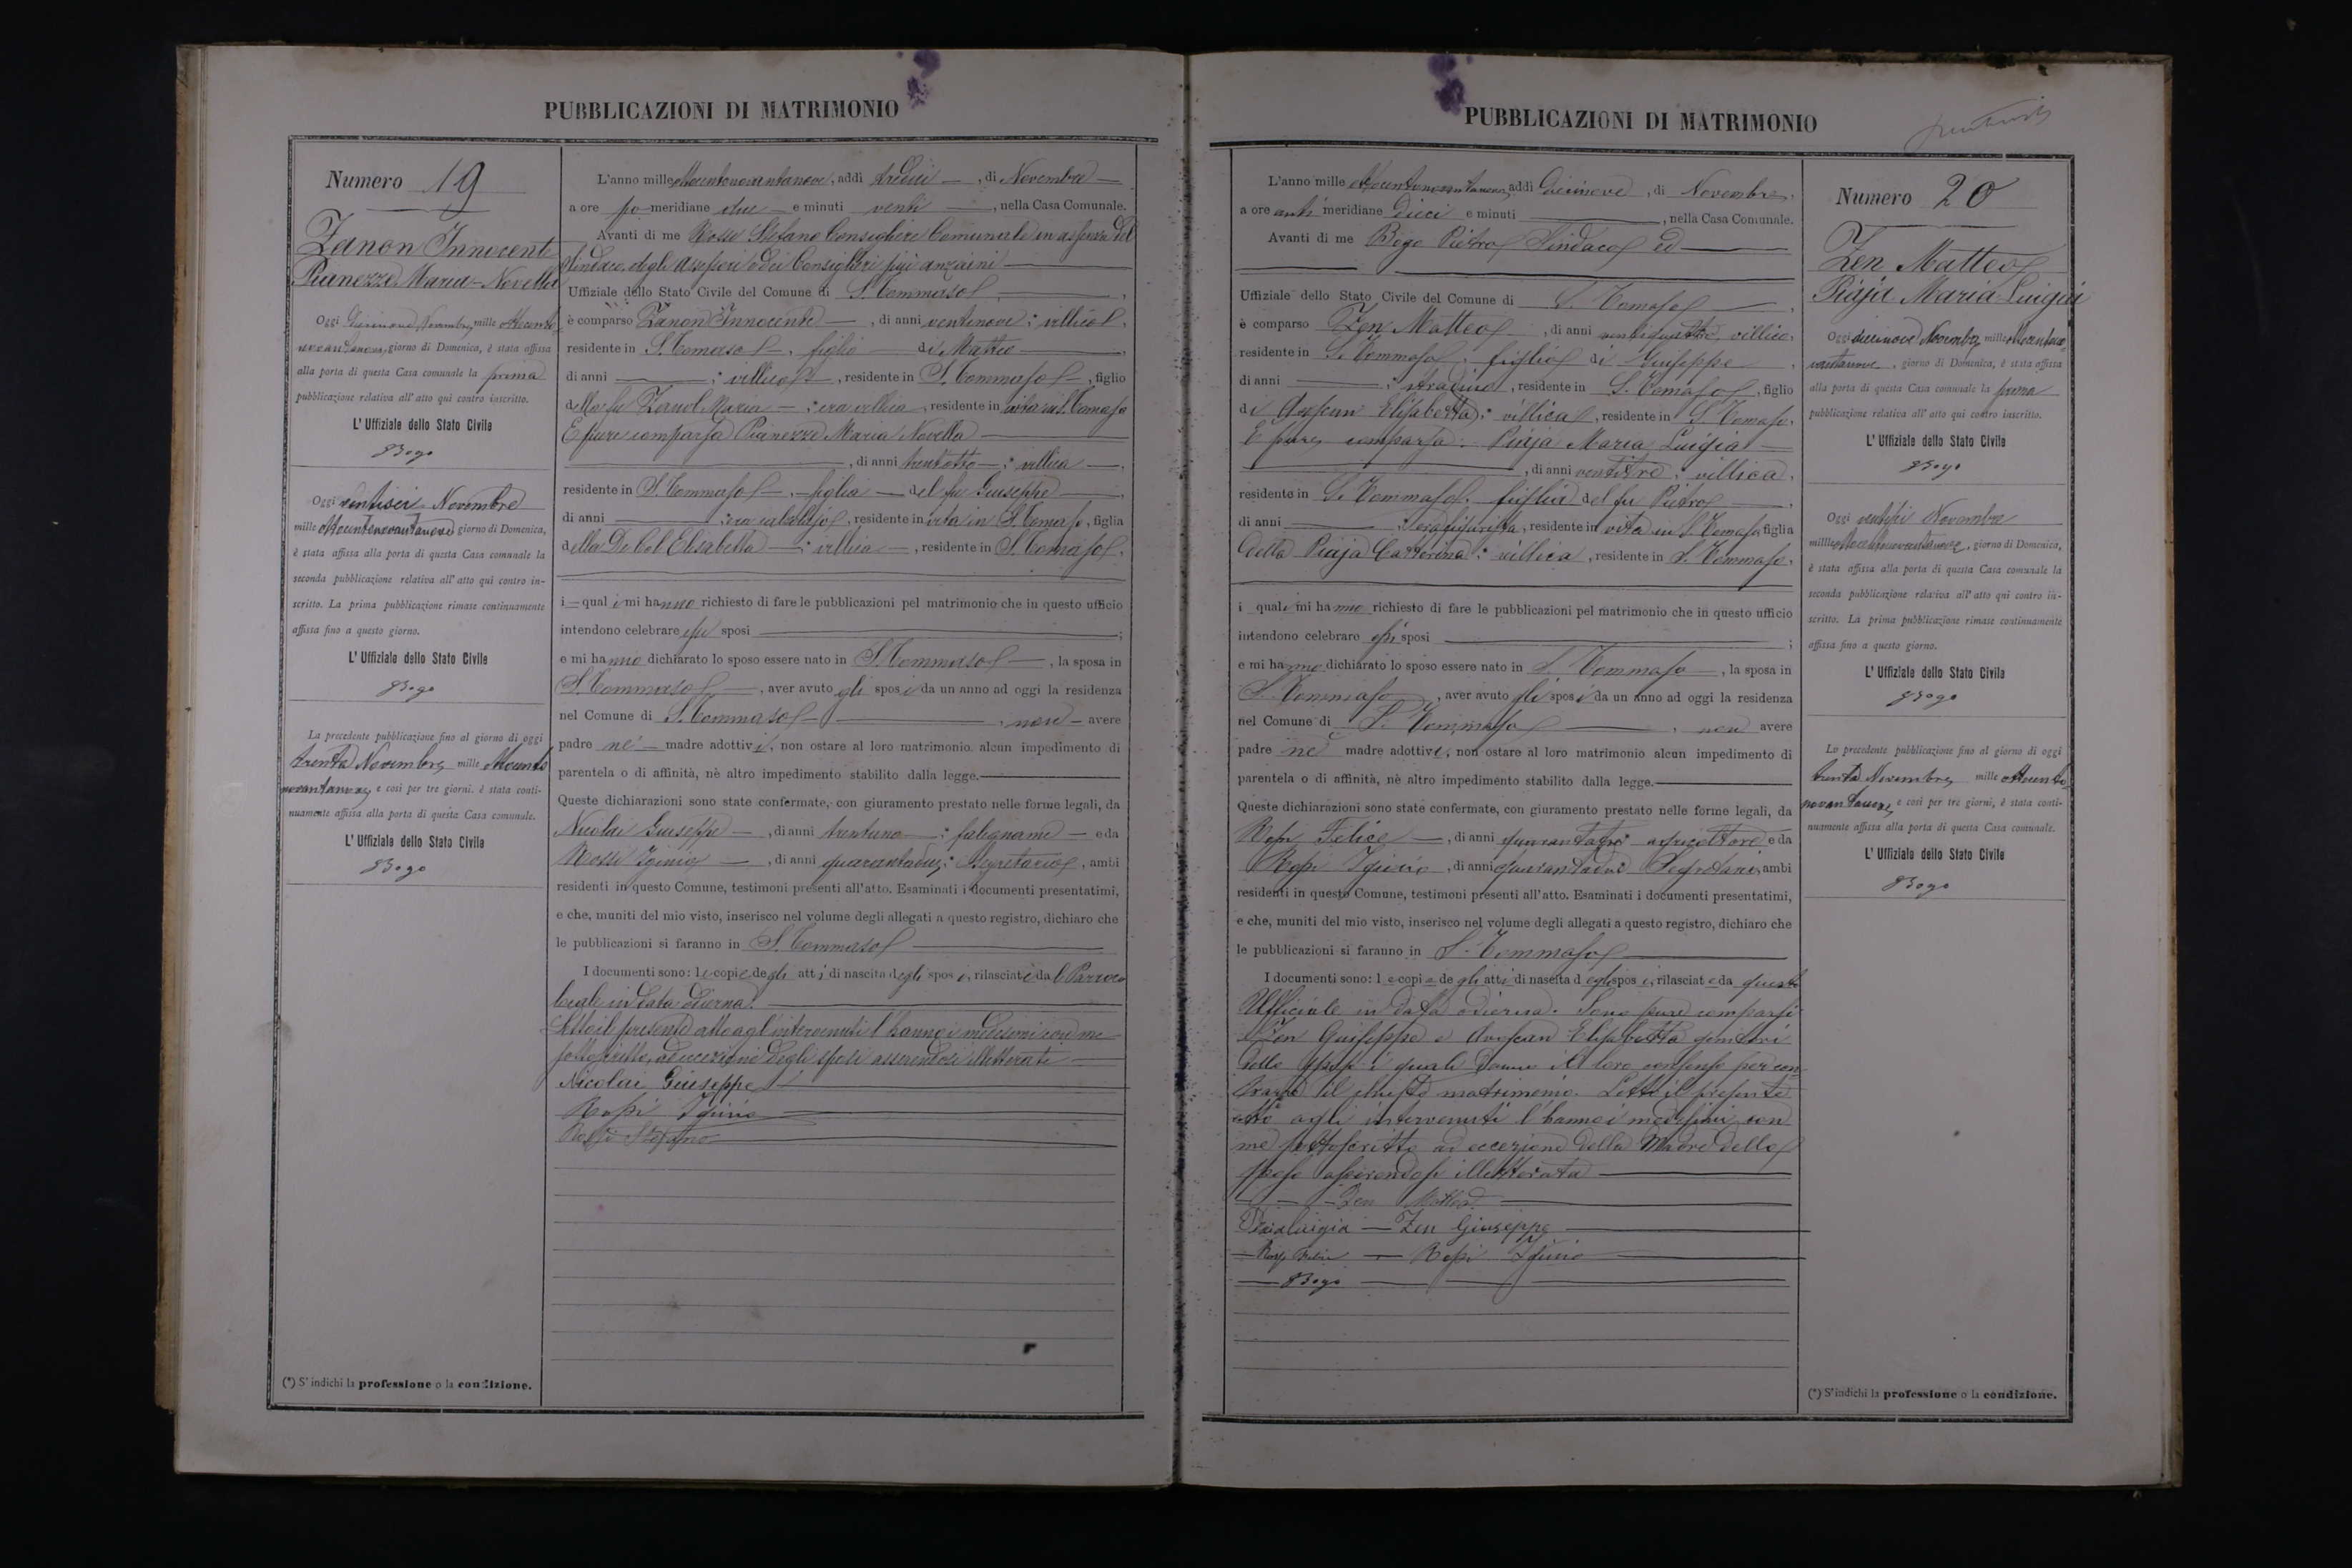 PUBBLICAZIONI DI MATRIMONIO
Numero 19
Zanon Innocente
Pianezze Maria-Novella
Oggi diecinove Novembre mille ottocento
novantanove, giorno di Domenica, è stata affissa
alla porta di questa Casa comunale la prima
pubblicazione relativa all'atto quì contro inscritto.
L'Uffiziale dello Stato Civile
Bogo
Oggi ventisei Novembre
mille ottocentonovantanove giorno di Domenica,
è stata affissa alla porta di questa Casa comunale la
seconda pubblicazione relativa all'atto quì contro in-
scritto. La prima pubblicazione rimase continuamente
affissa fino a questo giorno.
L'Uffiziale dello Stato Civile
Bogo
La precedente pubblicazione fino al giorno di oggi
trenta Novembre mille ottocento
novantanove e così per tre giorni, è stata conti-
nuamente affissa alla porta di questa Casa comunale.
L'Uffiziale dello Stato Civile
Bogo
(*) S'indichi la professione o la condizione.
L'anno mille ottocentonovantanove, addì tredici, di Novembre
a ore po meridiane due e minuti venti, nella Casa Comunale.
Avanti di me Rossi Stefano Consigliere Comunale in assenza del
Sindaco, degli Assessori e dei Consiglieri più anzaini
Uffiziale dello Stato Civile del Comune di S. Tommaso,
è comparso Zanon Innocente, di anni ventinove; villico,
residente in S. Tomaso, figlio di Matteo,
di anni ; villico, residente in S. Tommaso, figlio
della fu Maria; era villica, residente in vita in S. Tomaso
È pure comparsa Pianezze Maria Novella
, di anni trentotto; villica,
residente in S. Tommaso, figlia del fu Giuseppe,
di anni ; era, residente in vita in S. Tomaso, figlia
della De Col Elisabetta; villica, residente in S. Tomaso.
i quali mi hanno richiesto di fare le pubblicazioni pel matrimonio che in questo ufficio
intendono celebrare essi sposi ;
e mi hanno dichiarato lo sposo essere nato in S. Tommaso, la sposa in
S. Tommaso, aver avuto gli sposi da un anno ad oggi la residenza
nel Comune di S. Tommaso, non avere
padre nè madre adottivi, non ostare al loro matrimonio alcun impedimento di
parentela o di affinità, nè altro impedimento stabilito dalla legge.
Queste dichiarazioni sono state confermate, con giuramento prestato nelle forme legali, da
Nicolai Giuseppe, di anni trentuno; falegname e da
Rossi Iginio, di anni quarantadue; Segretario, ambi
residenti in questo Comune, testimoni presenti all'atto. Esaminati i documenti presentatimi,
e che, muniti del mio visto, inserisco nel volume degli allegati a questo registro, dichiaro che
le pubblicazioni si faranno in S. Tommaso
I documenti sono: le copie degli atti di nascita degli sposi, rilasciate dal Parroco
locale in data odierna.
Letto il presente atto agl'intervenuti l'hanno i medesimi con me
sottoscritto, ad eccezione degli sposi asserendosi illetterati
Nicolai Giuseppe
Rossi Iginio
Rossi Stefano
PUBBLICAZIONI DI MATRIMONIO
L'anno mille ottocentonovantanove, addì diecinove, di Novembre,
a ore anti meridiane dieci e minuti , nella Casa Comunale.
Avanti di me Bogo Pietro Sindaco ed
Uffiziale dello Stato Civile del Comune di S. Tomaso,
è comparso Zen Matteo, di anni ventiquattro, villico,
residente in S. Tommaso, figlio di Giuseppe,
di anni ; stradino, residente in S. Tomaso, figlio
di Avoscan Elisabetta; villica, residente in S. Tomaso.
È pure comparsa: Piaja Maria Luigia
, di anni ventitre; villica,
residente in S. Tommaso, figlia del fu Pietro,
di anni ;, residente in vita in S. Tomaso figlia
della Piaja Catterina; villica, residente in S. Tommaso.
i quali mi hanno richiesto di fare le pubblicazioni pel matrimonio che in questo ufficio
intendono celebrare essi sposi ;
e mi hanno dichiarato lo sposo essere nato in S. Tommaso, la sposa in
S. Tommaso, aver avuto gli sposi da un anno ad oggi la residenza
nel Comune di S. Tommaso, non avere
padre nè madre adottivi, non ostare al loro matrimonio alcun impedimento di
parentela o di affinità, nè altro impedimento stabilito dalla legge.
Queste dichiarazioni sono state confermate, con giuramento prestato nelle forme legali, da
Rossi Felice, di anni quarantatre agricoltore e da
Rossi Iginio, di anni quarantadue Segretario, ambi
residenti in questo Comune, testimoni presenti all'atto. Esaminati i documenti presentatimi,
e che, muniti del mio visto, inserisco nel volume degli allegati a questo registro, dichiaro che
le pubblicazioni si faranno in S. Tommaso
I documenti sono: le copie degli atti di nascita degli sposi, rilasciate da questo
Ufficiale in data odierna. Sono pure comparsi
Zen Guiseppe e Avoscan Elisabetta genitori
dello sposo i quali danno il loro consenso per con-
trarre il chiesto matrimonio. Letto il presente
atto agli intervenuti l'hanno i medesimi con
me sottoscritto ad eccezione della Madre dello
sposo asserendosi illetterata
Zen Matteo
Piaia Luigia Zen Giuseppe
Rossi Felice Rossi Iginio
Bogo
Numero 20
Zen Matteo
Piaja Maria Luigia
Oggi diecinove Novembre mille ottocento
novantanove, giorno di Domenica, è stata affissa
alla porta di questa Casa comunale la prima
pubblicazione relativa all'atto quì contro inscritto.
L'Uffiziale dello Stato Civile
Bogo
Oggi ventisei Novembre
mille ottocentonovantanove, giorno di Domenica,
è stata affissa alla porta di questa Casa comunale la
seconda pubblicazione relativa all'atto quì contro in-
scritto. La prima pubblicazione rimase continuamente
affissa fino a questo giorno.
L'Uffiziale dello Stato Civile
Bogo
La precedente pubblicazione fino al giorno di oggi
trenta Novembre mille ottocento
novantanove e così per tre giorni, è stata conti-
nuamente affissa alla porta di questa Casa comunale.
L'Uffiziale dello Stato Civile
Bogo
(*) S'indichi la professione o la condizione.